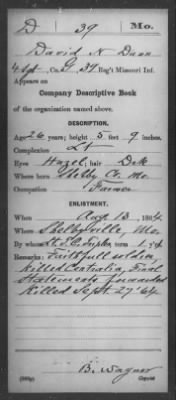 D 39 Mo.
David N Dunn
4 Sgt, Co. G, 39 Reg't Missouri Inf.
Appears on
Company Descriptive Book
of the organization named above.
DESCRIPTION.
Age 26 years; height 5 feet 9 inches.
Complexion Lt
Eyes Hazel; hair Dek
Where born Shelby Co. Mo.
Occupation Farmer
ENLISTMENT.
When Aug 13, 1864
Where Shelbyville, Mo.
By whom Lt. term 1 y'rs
Remarks: Faithfull soldier,
killed Centralia, Final
Statements forwarded
Killed Sept. 27 '64
B. Wagner
Copyist